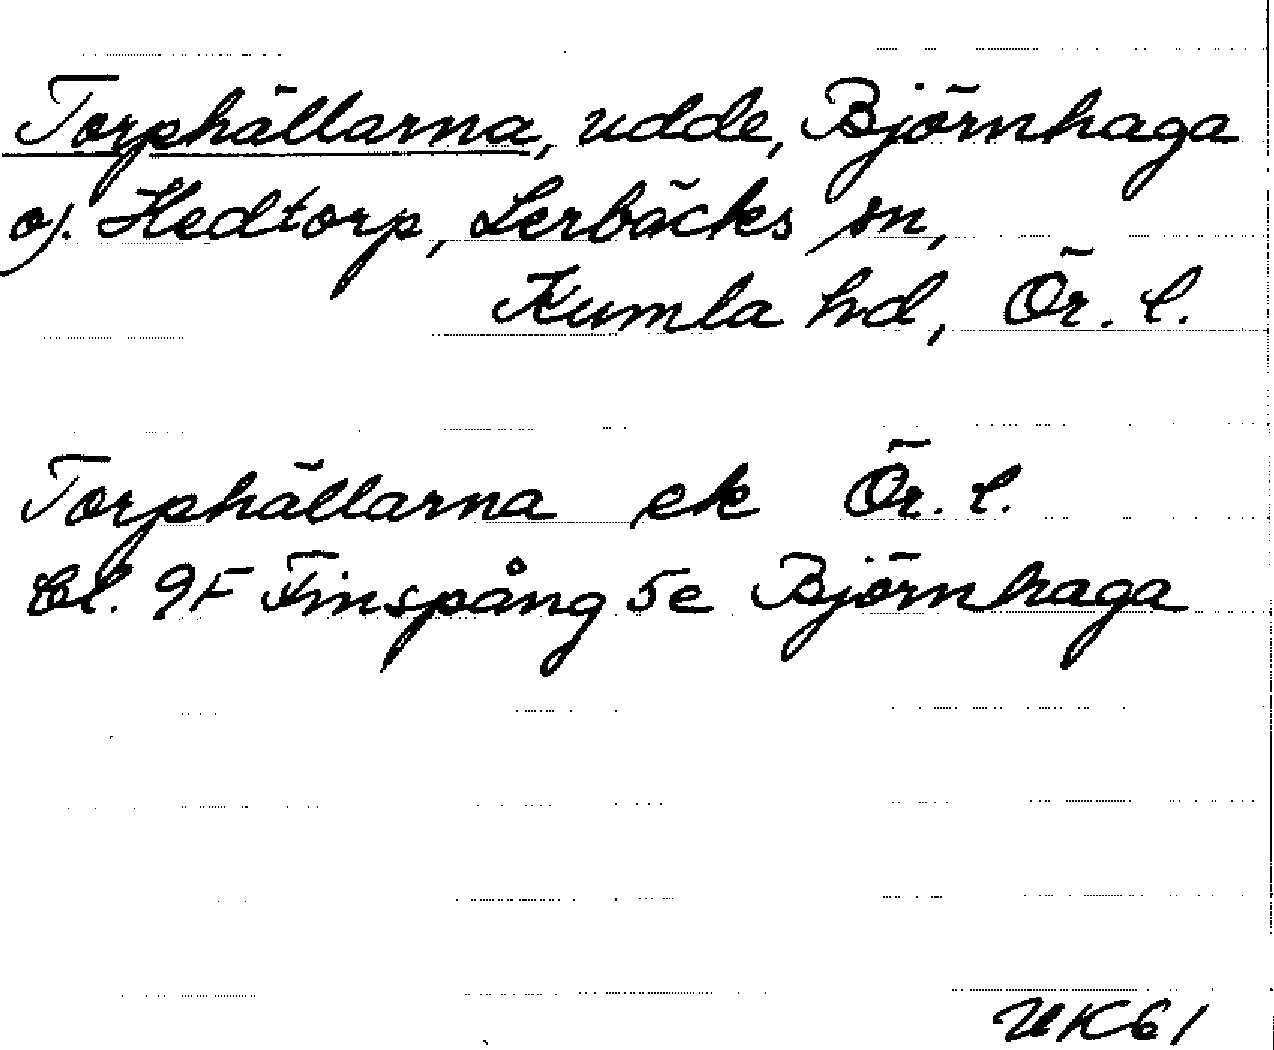 Torphällarna, udde, Björnhaga
o). Hedtorp, Lerbäcks sn,
Kumla hd, Ör. l.
Torphällarna ek Ör. l.
Bl. 9F Finspång 5e Björnhaga
UK61